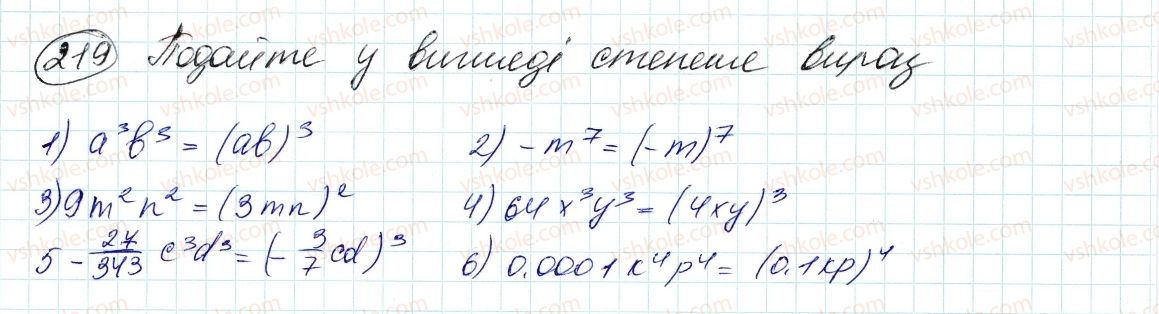 219 Подайте у вигляді степеня вираз
1) a³b³ = (ab)³ 2) -m⁷ = (-m)⁷
3) 9m²n² = (3mn)² 4) 64x³y³ = (4xy)³
5 - 27/343 c³d³ = (- 3/7 cd)³ 6) 0.0001k⁴p⁴ = (0.1kp)⁴
vshkole.com